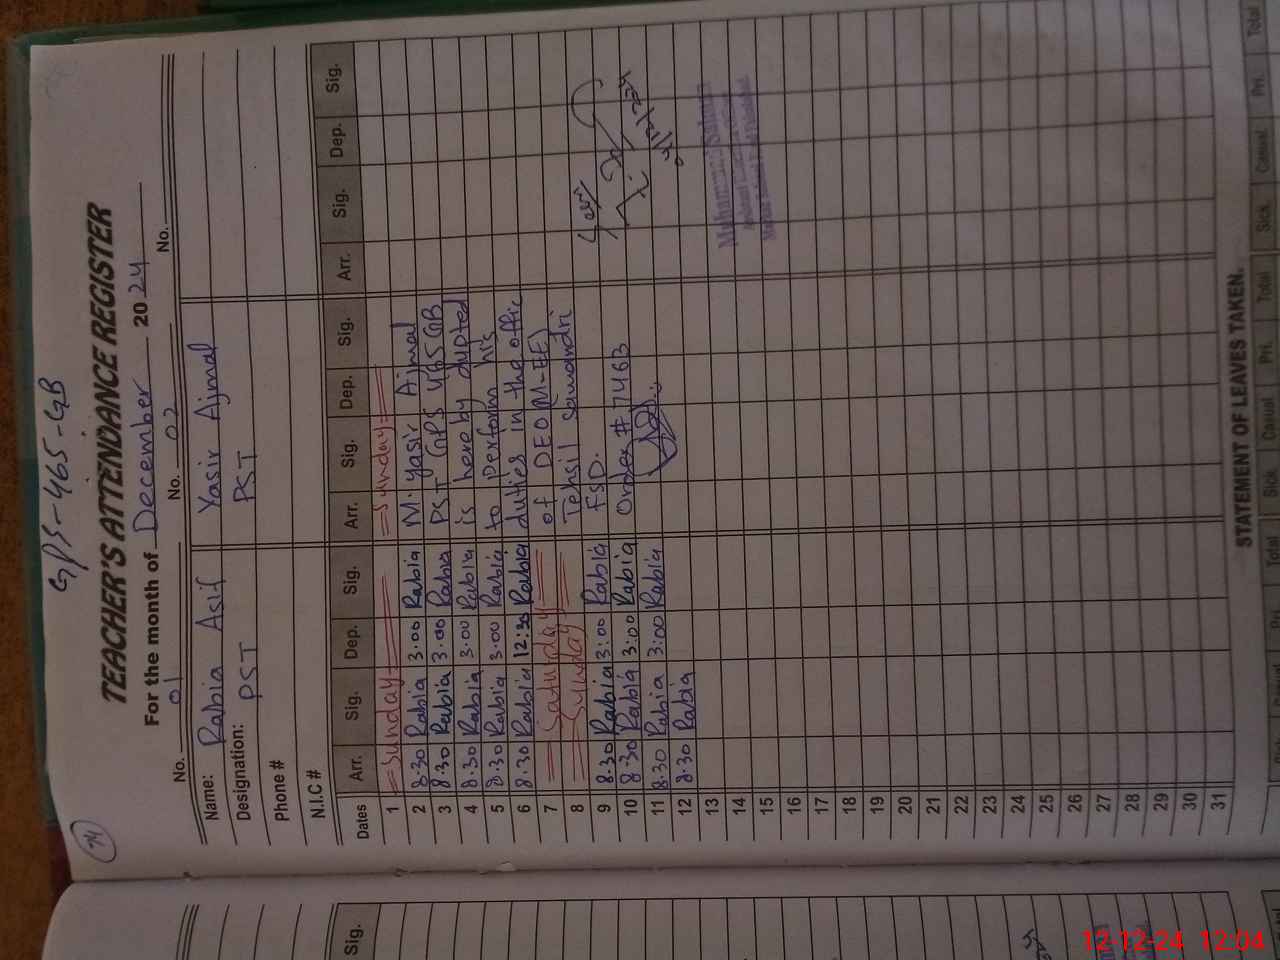 74
GPS-465-GB
TEACHER'S ATTENDANCE REGISTER
For the month of December 2024
No. 01 No. 02 No.
Name: Rabia Asif Yasir Ajmal
Designation: PST PST
Phone #
N.I.C #
Dates Arr. Sig. Dep. Sig. Arr. Sig. Dep. Sig. Arr. Sig. Dep. Sig.
1 Sunday Sunday
2 8.30 Rabia 3.00 Rabia M. Yasir Ajmal
3 8.30 Rabia 3.00 Rabia PST GPS 465 GB
4 8.30 Rabia 3.00 Rabia is hereby dupted
5 8.30 Rabia 3.00 Rabia to Perform his
6 8.30 Rabia 12:30 Rabia duties in the offic
7 Saturday of DEO (M-EE)
8 Sunday Tehsil Samandri
9 8.30 Rabia 3:00 Rabia FSD.
10 8.30 Rabia 3:00 Rabia Order # 7463
11 8.30 Rabia 3:00 Rabia
12 8.30 Rabia
13
14
15
16
17
18
19
20
21
22
23
24
25
26
27
28
29
30
31
STATEMENT OF LEAVES TAKEN.
Total Sick Casual Pri. Total Sick Casual Pri. Total
Sig.
12-12-24 12:04